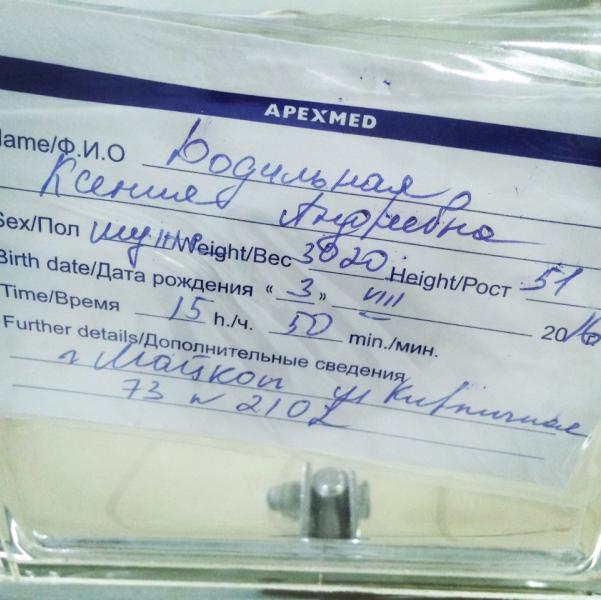 APEXMED
Name/Ф.И.О Бодильная
Ксения Андреевна
Sex/Пол муж Weight/Вес 3020 Height/Рост 51
Birth date/Дата рождения « 3 » VIII 2016
Time/Время 15 h./ч. 50 min./мин.
Further details/Дополнительные сведения
г Майкоп ул Кирпичная
73 2102